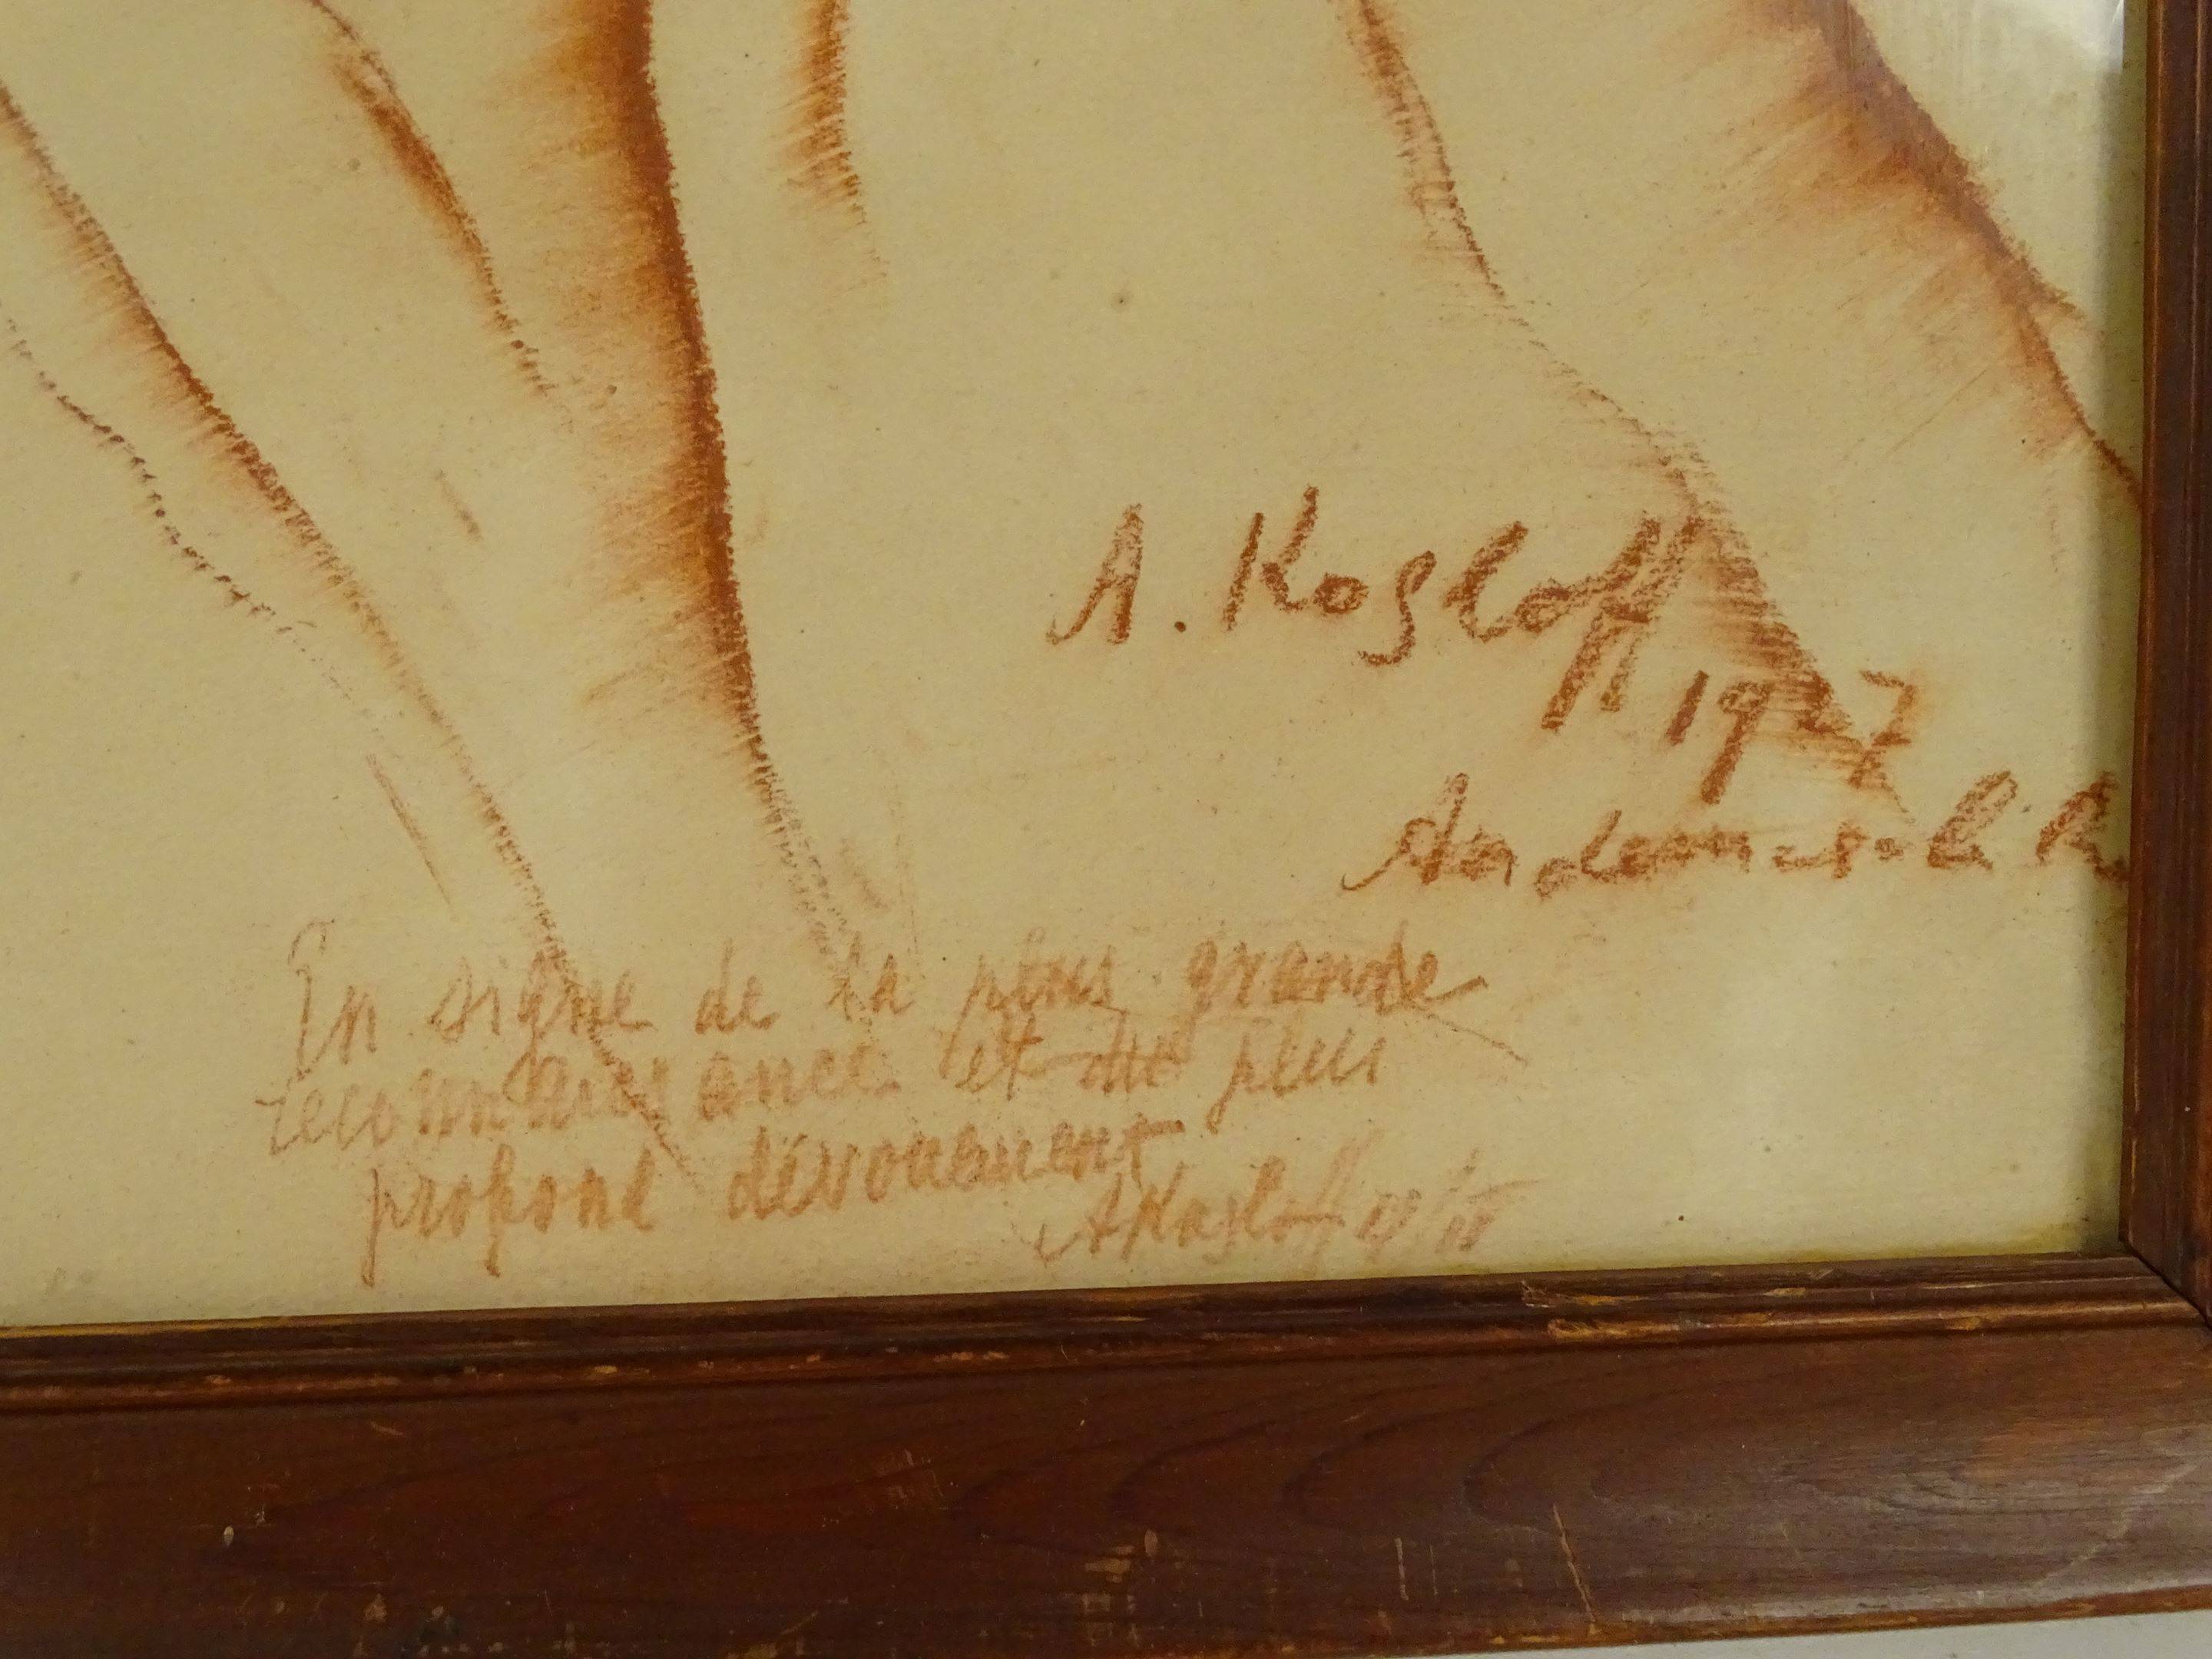 A. Kosloff
1927
Andernos-les-B
En signe de la plus grande
reconnaissance et du plus
profond dévouement
AKosloff